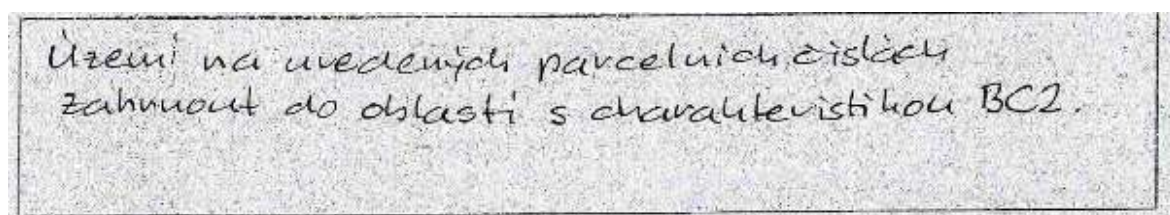 Území na uvedených parcelních číslech
zahrnout do oblasti s charakteristikou BC2.